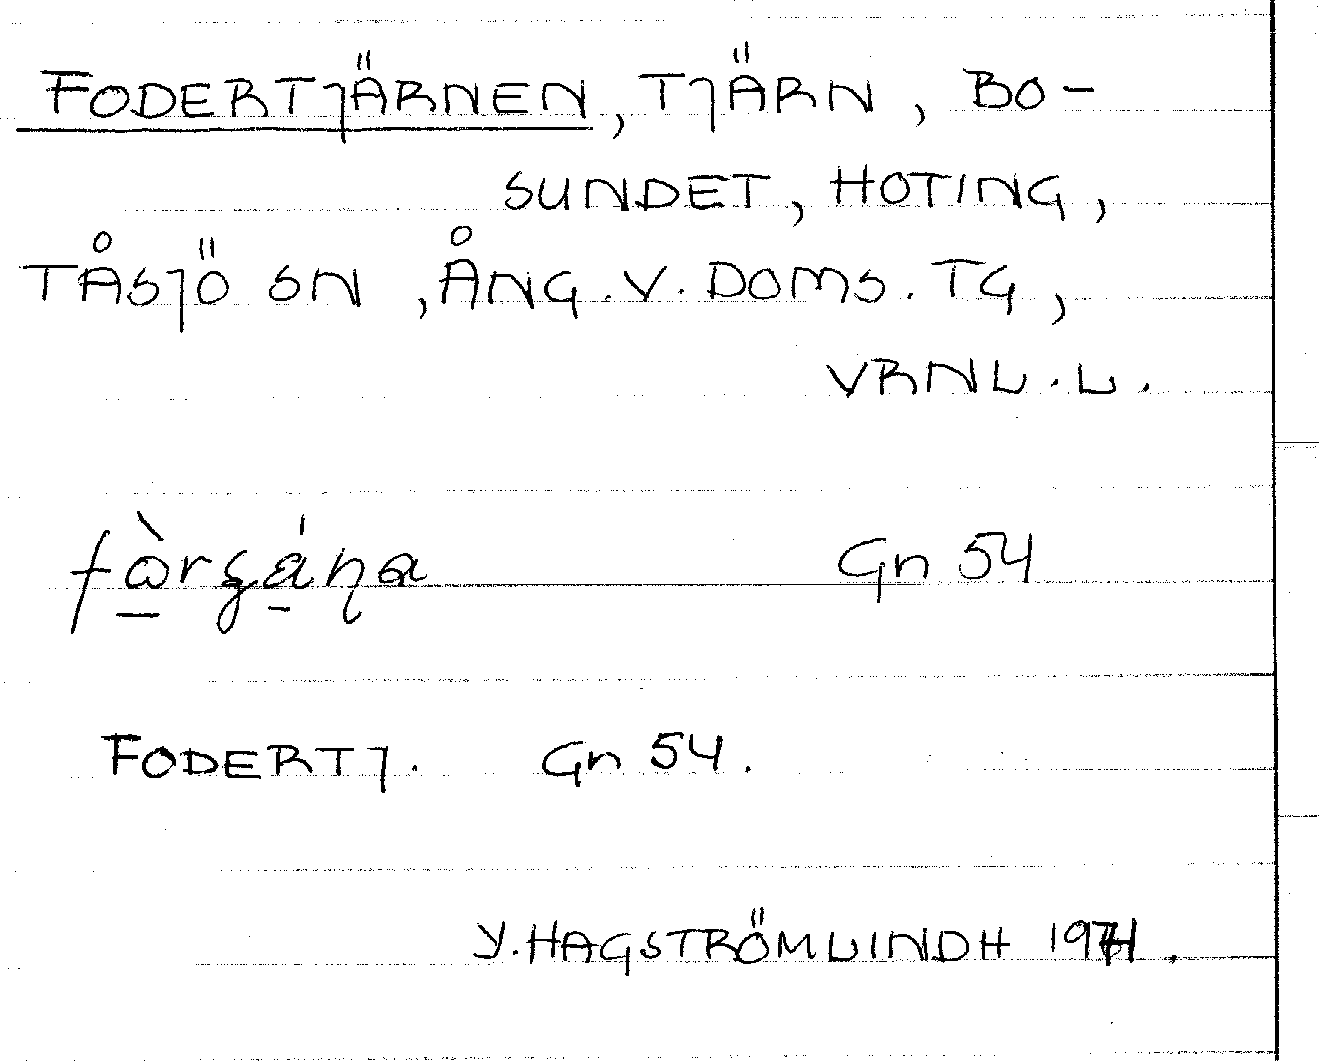 FODERTJÄRNEN, TJÄRN, BO-
SUNDET, HOTING,
TÅSJÖ SN, ÅNG.V.DOMS.TG,
VRNL.L.
Gn 54
FODERTJ. Gn 54.
Y.HAGSTRÖMLINDH